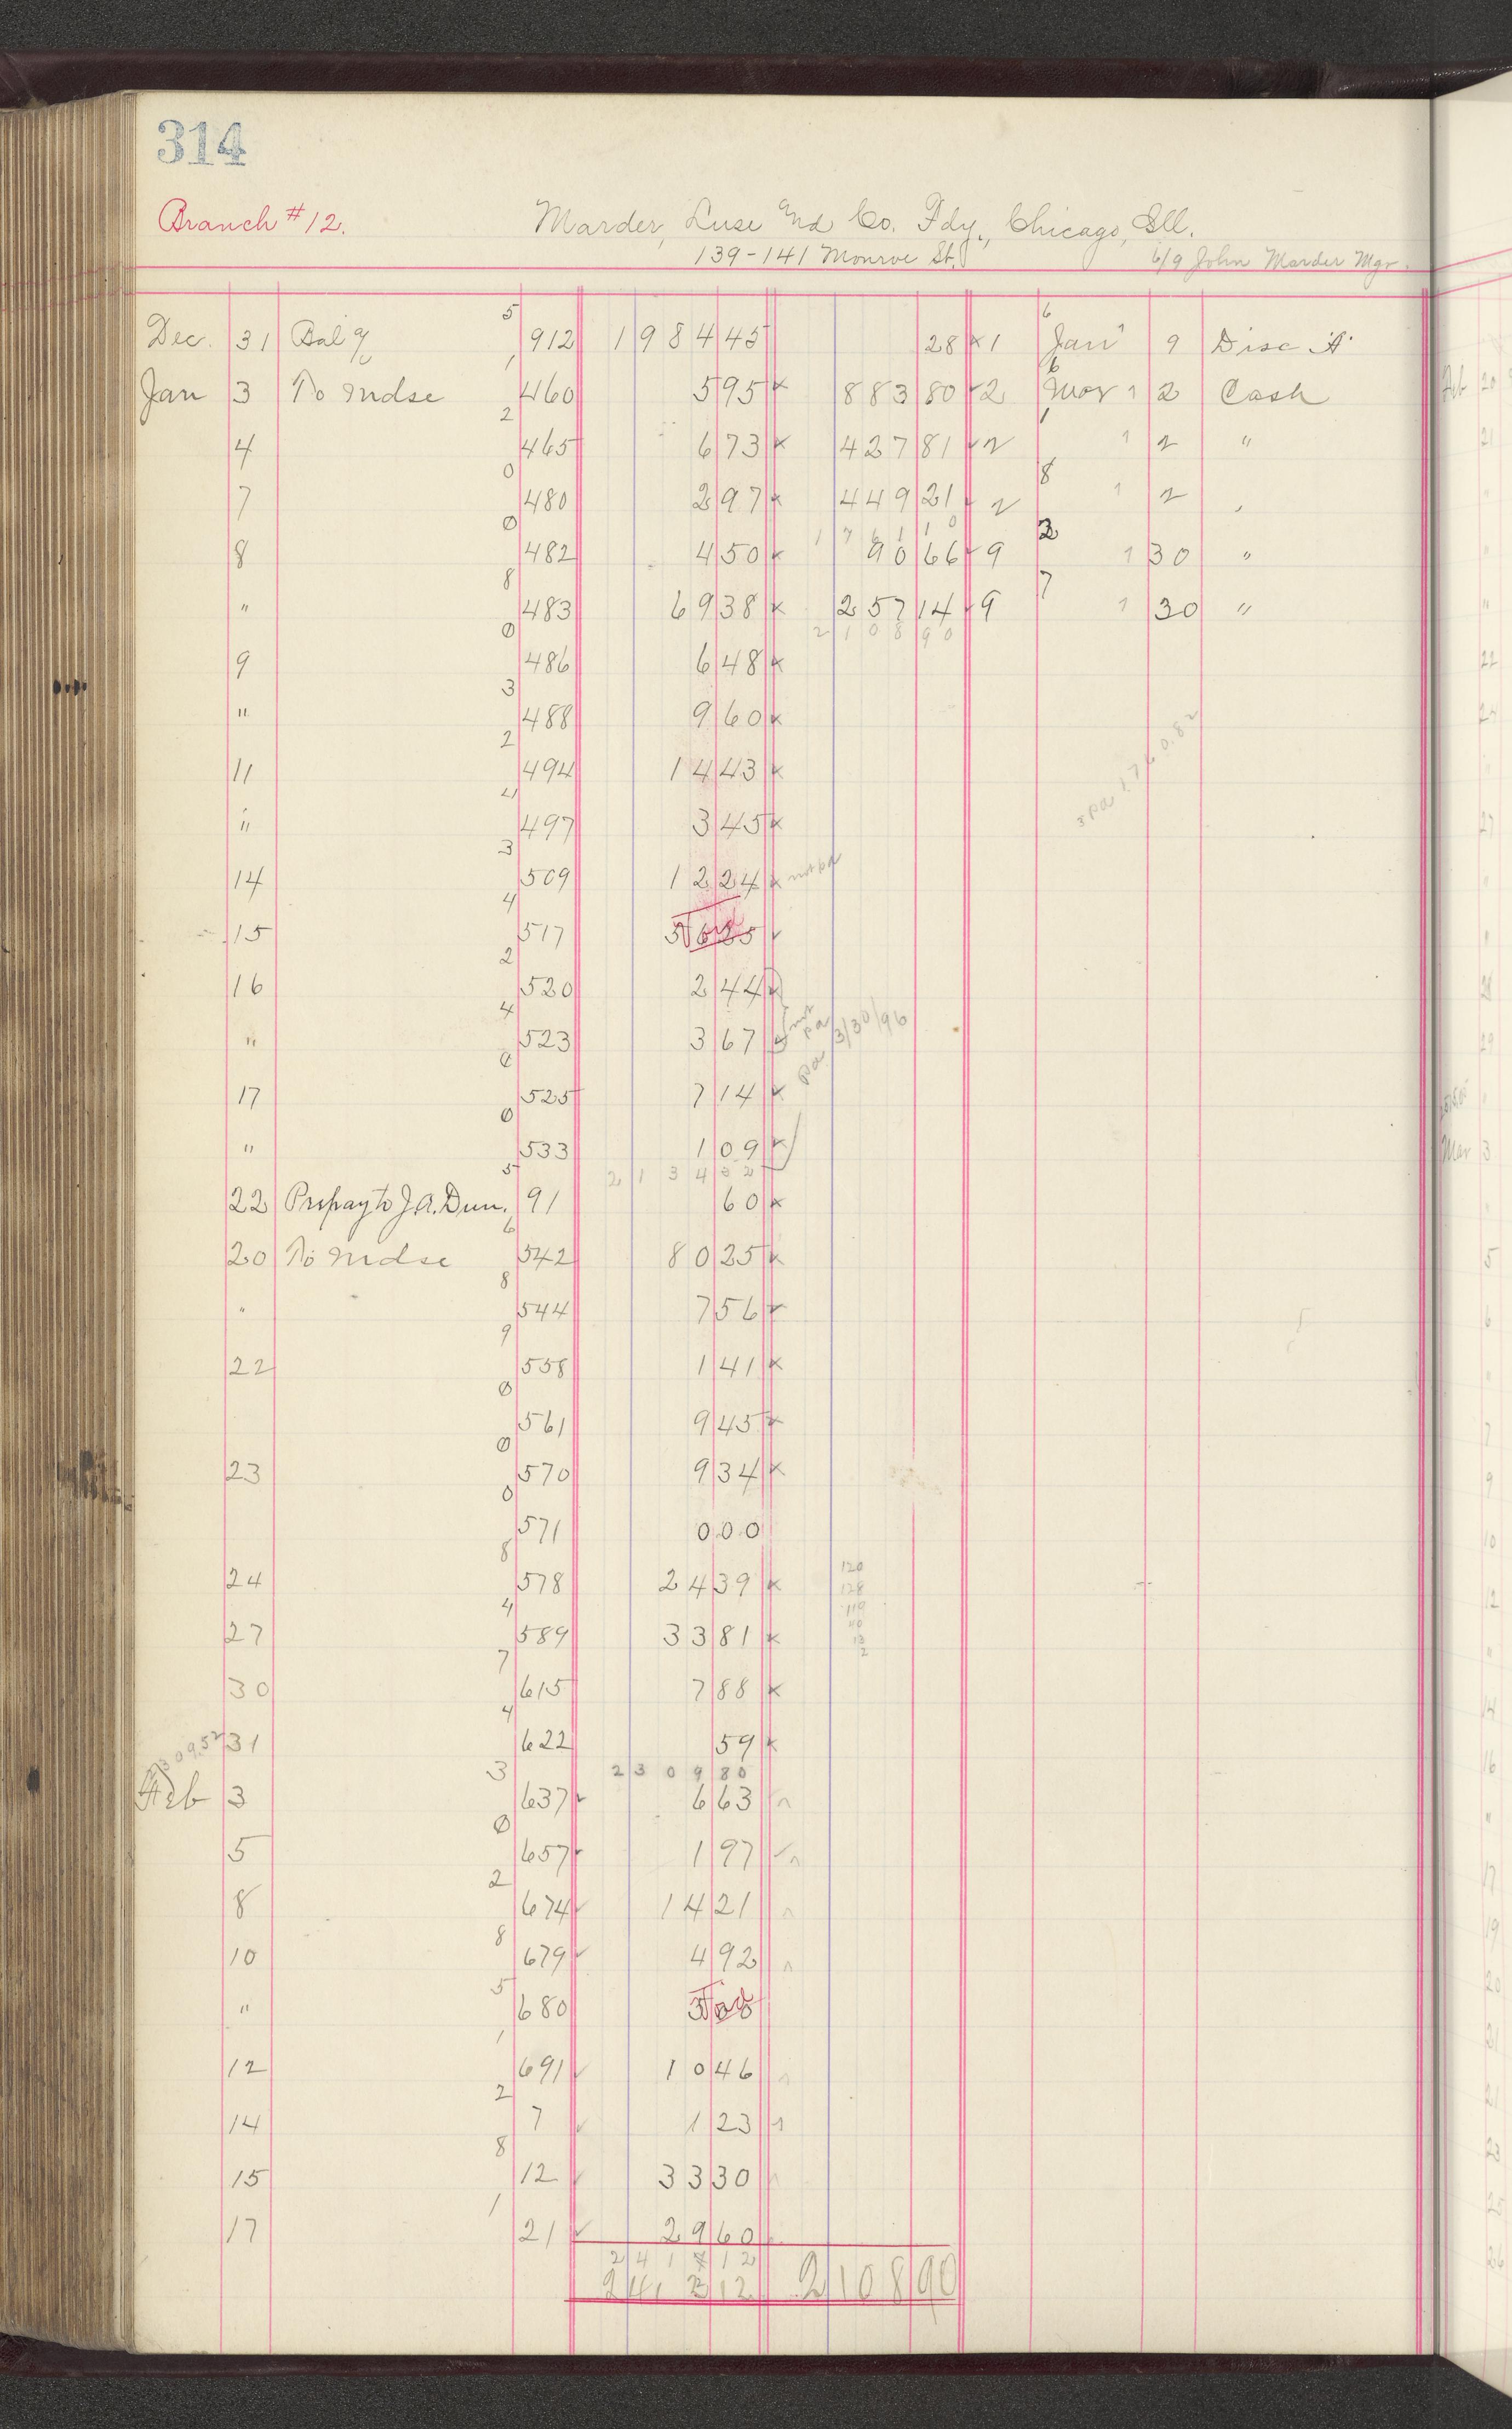 314
Branch #12. Marder, Luse and Co. Fdy., Chicago, Ill.
139-141 Monroe St. 6/9 John Marder Mgr.
5 6
Dec. 31 Bal 912 1984 45 28 1 Jan 9 Disc
1 6
Jan 3 To Mdse 460 5 95 883 80 2 Mar 2 Cash
2 1
4 465 6 73 427 81 2 2 "
0 8
7 480 2 97 449 21 2 2 "
0 1 7 6 1 1 0 2
8 482 4 50 90 66 9 30 "
8 7
" 483 69 38 257 14 9 30 "
0 2 1 0 8 9 0
9 486 6 48
3
" 488 9 60
2
11 494 14 43
4 3 pa 1760.82
" 497 3 45
3
14 509 12 24 not pd
4
15 517 56 25
2
16 520 2 44
4 not pa
" 523 3 67 pa 3/30/96
17 525 7 14
0
" 533 1 09
5 2 1 3 4 3 2
22 Prepay to J.A. Dun. 91 60
6
20 To Mdse 542 80 25
8
" 544 7 56
9
22 558 1 41
0
561 9 45
0
23 570 9 34
0
571 0 00
8 120
24 578 24 39 128
4 119
27 589 33 81
7 2
30 615 7 88
4
31 622 59
3 2 3 0 9 80
Feb 3 637 6 63
0
5 657 1 97
2
8 674 14 21
8
10 679 4 92
5
" 680
1
12 691 10 46
2
14 7 1 23
8
15 12 33 30
1
17 21 29 60
2 4 1 1 2
241 12 2108 90